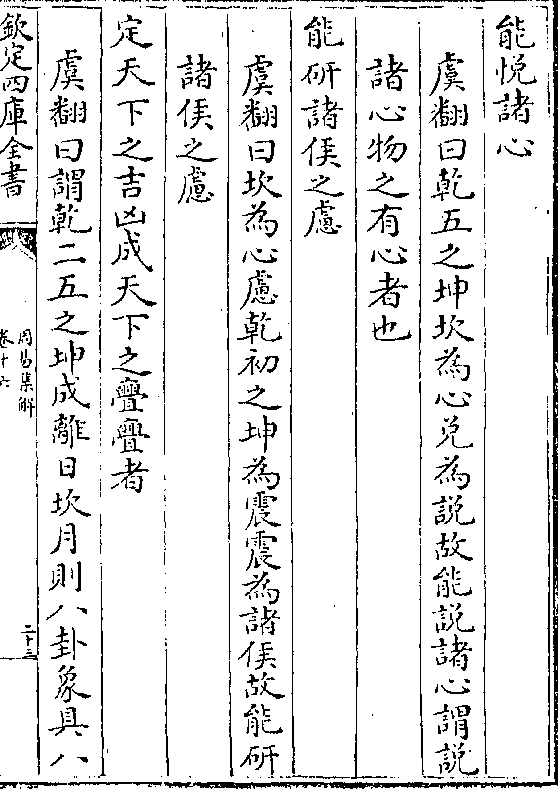 能悅諸心
虞翻曰乾五之坤坎為心兌為説故能説諸心謂説
諸心物之有心者也
能研諸侯之慮
虞翻曰坎為心慮乾初之坤為震震為諸侯故能研
諸侯之慮
定天下之吉凶成天下之亹亹者
虞翻曰謂乾二五之坤成離日坎月則八卦象具八
欽定四庫全書
周易集解
卷十六
二十三